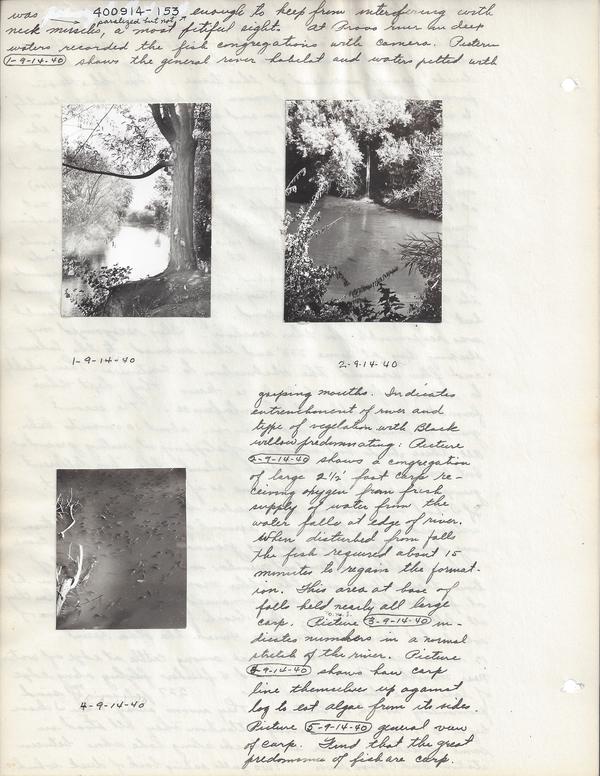 was 400914-153 enough to keep from interfering with
paralized but not
neck muscles, a most pitiful sight. At Provo river in deep
waters recorded the fish congregations with camera. Picture
1-9-14-40 shows the general river habitat and waters petted with
1-9-14-40
2-9-14-40
gasping mouths. Indicates
entrenchment of river and
type of vegetation with Black
willow predomnating: Picture
2-9-14-40 shows a congregation
of large 2 1/2' foot carp re-
ceiving oxygen from fresh
supply of water from the
water falls at edge of river.
When disturbed from falls
the fish required about 15
minutes to regain the format-
ion. This area at base of
falls held nearly all large
carp. Picture 3-9-14-40 in-
dicates numbers in a normal
stretch of the river. Picture
4-9-14-40 shows how carp
line themselves up against
log to eat algae from its sides.
Picture 5-9-14-40 general view
of carp. Find that the great
predomance of fish are carp.
4-9-14-40